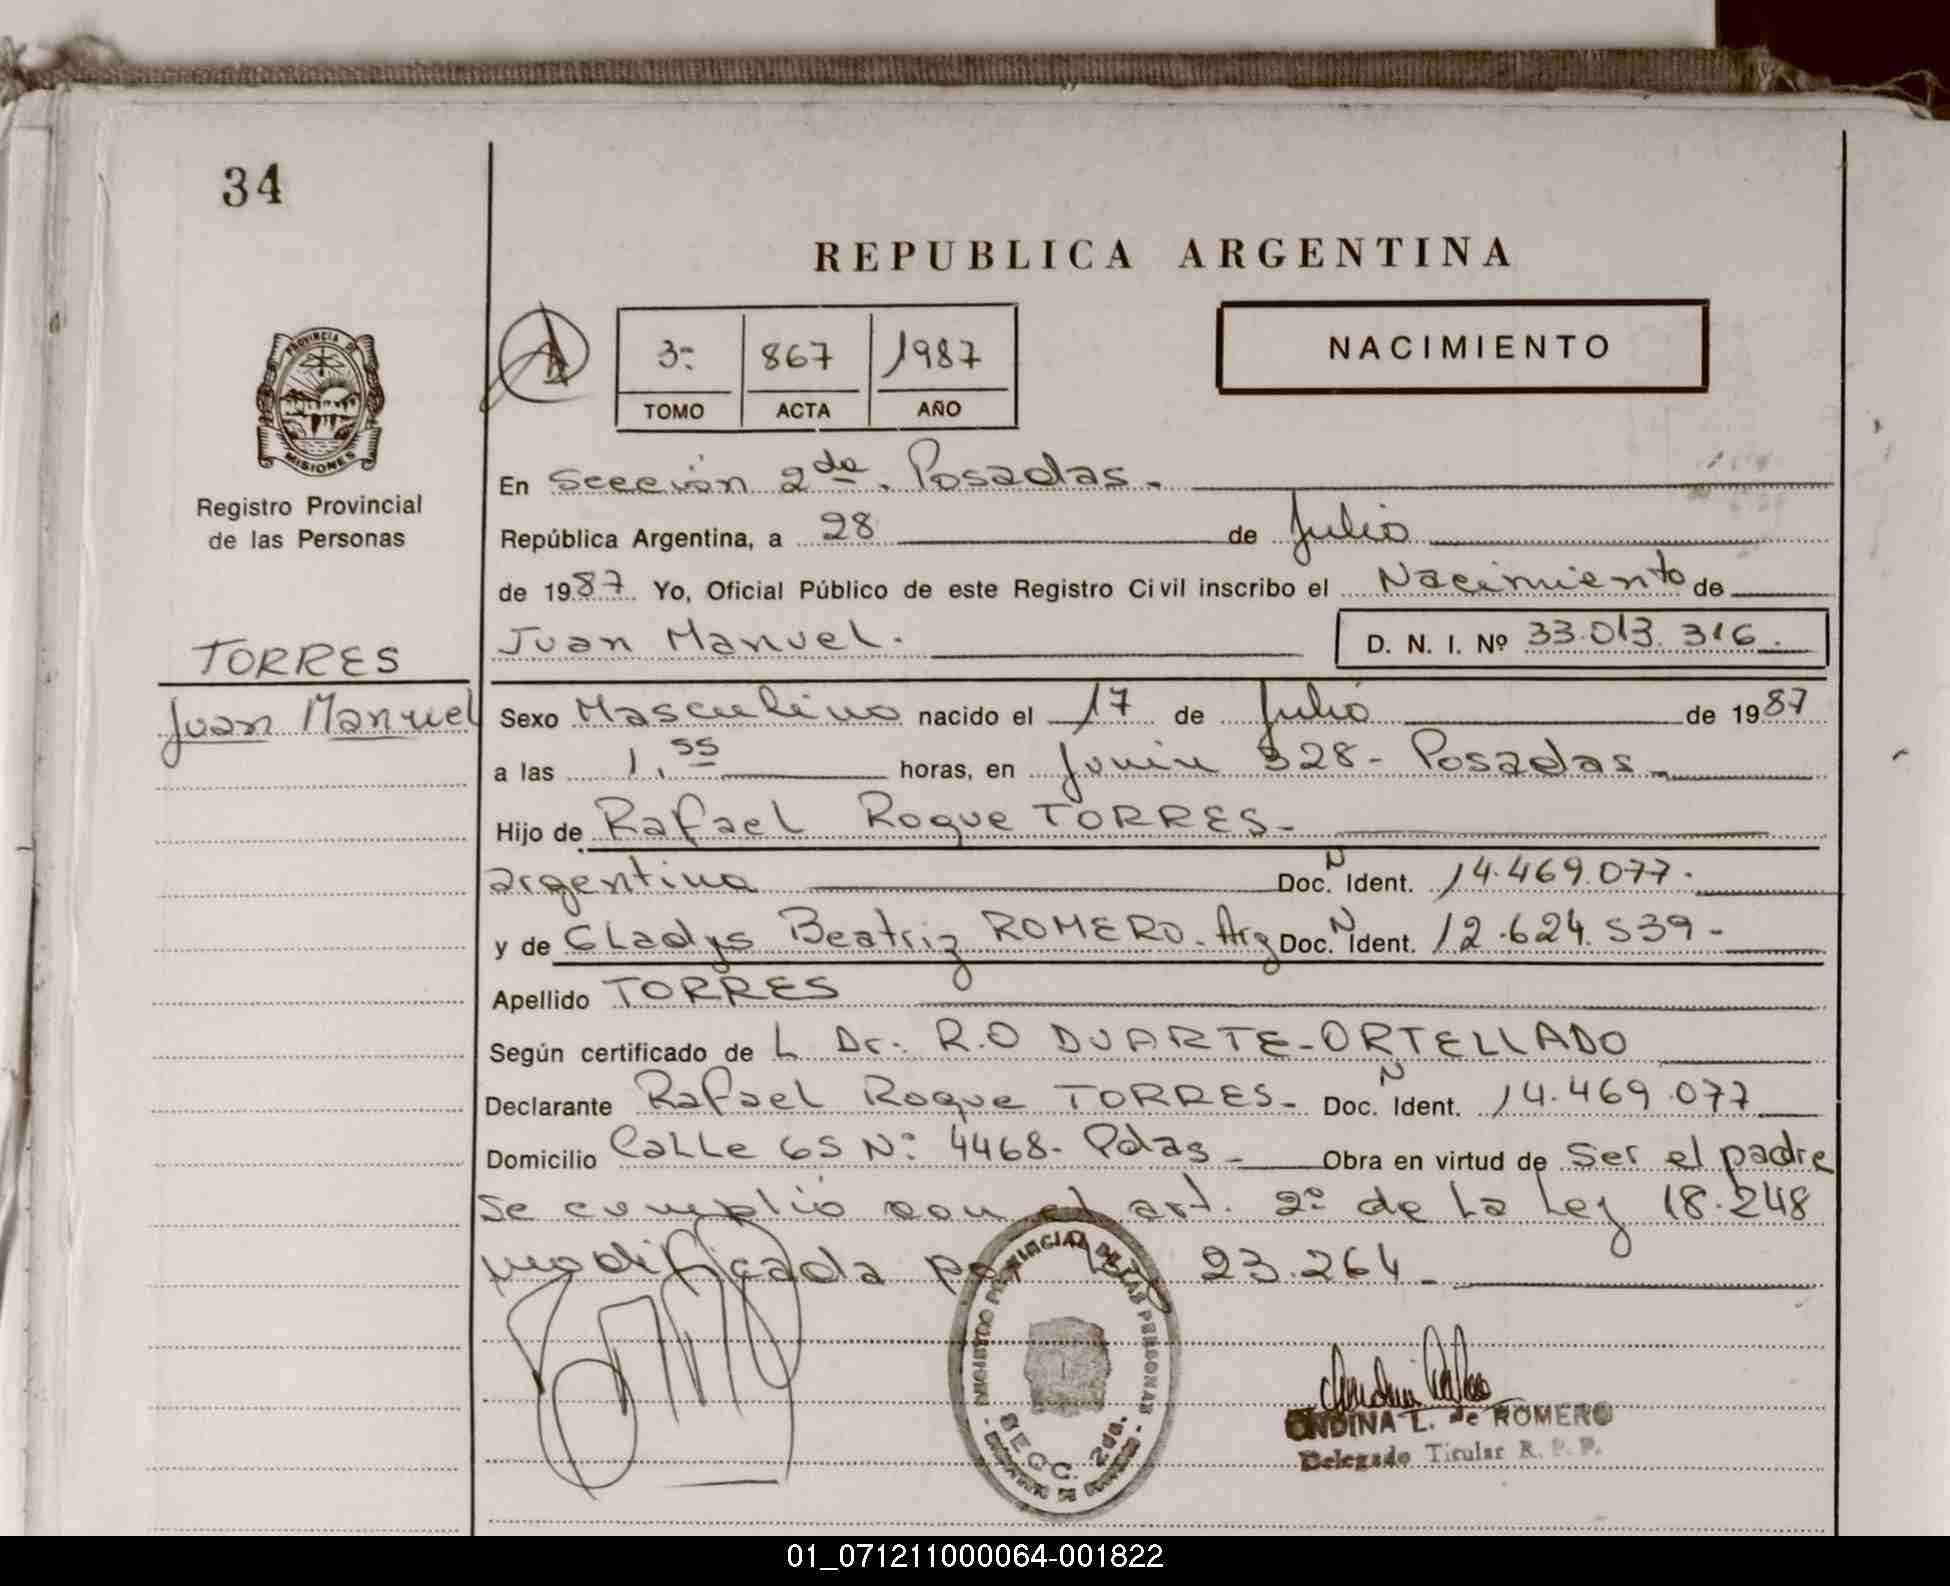 34
REPUBLICA ARGENTINA
PROVINCIA DE
MISIONES
3º 867 1987
TOMO ACTA AÑO
NACIMIENTO
Registro Provincial
de las Personas
En Sección 2da. Posadas.
República Argentina, a 28 de Julio
de 1987 Yo, Oficial Público de este Registro Civil inscribo el Nacimiento de
Juan Manuel. D. N. I. Nº 33.013.316.
TORRES
Juan Manuel
Sexo Masculino nacido el 17 de Julio de 1987
a las 1,55 horas, en Junin 328- Posadas-
Hijo de Rafael Roque TORRES-
argentina Doc. N Ident. 14.469.077.
y de Gladys Beatriz ROMERO. Arg Doc. N Ident. 12.624.539-
Apellido TORRES
Según certificado de L Dr. R.O DUARTE-ORTELLADO
Declarante Rafael Roque TORRES- Doc. N Ident. 14.469.077
Domicilio Calle 65 Nº 4468- Pdas- Obra en virtud de Ser el padre
Se cumplió con el art. 2º de la Ley 18.248
modificada por Ley 23.264-
REGISTRO PROVINCIAL DE LAS PERSONAS
SECC. 2da.
ONDINA L. de ROMERO
Delegado Titular R. P. P.
01_071211000064-001822